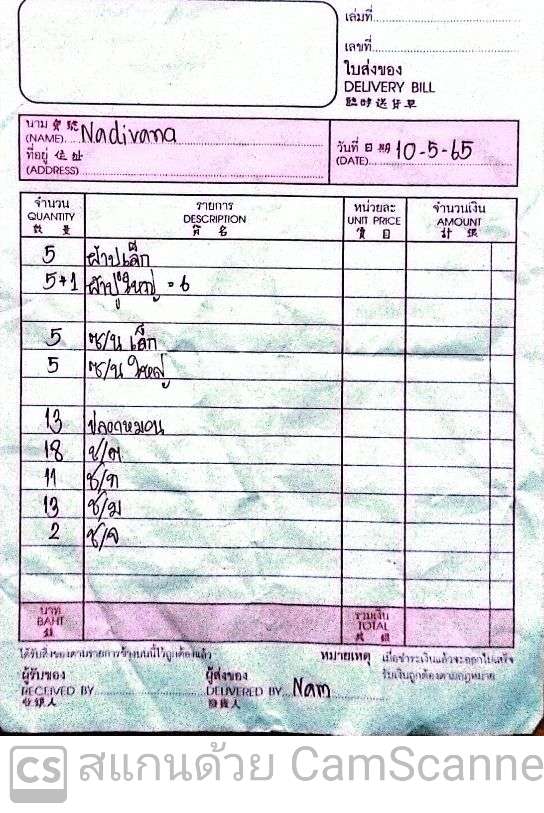 เล่มที่
เลขที่
ใบส่งของ
DELIVERY BILL
臨時送貨單
นาม 寶號 Nadivana
(NAME)
ที่อยู่ 住址
(ADDRESS)
วันที่ 日期 10-5-65
(DATE)
จำนวน รายการ หน่วยละ จำนวนเงิน
QUANTITY DESCRIPTION UNIT PRICE AMOUNT
數量 貨名 價目 計銀
5 ผ้าปูเล็ก
5+1 ผ้าปูใหญ่ = 6
5 ซ/น เล็ก
5 ซ/น ใหญ่
13 ปลอกหมอน
18 ช/ต
11 ช/ท
13 ช/ม
2 ช/จ
บาท รวมเงิน
BAHT TOTAL
ได้รับสิ่งของตามรายการข้างบนนี้ไว้ถูกต้องแล้ว
หมายเหตุ เมื่อชำระเงินแล้วจะออกใบเสร็จ
รับเงินถูกต้องตามกฎหมาย
ผู้รับของ ผู้ส่งของ
RECEIVED BY DELIVERED BY Nam
收貨人 發貨人
CS สแกนด้วย CamScanne